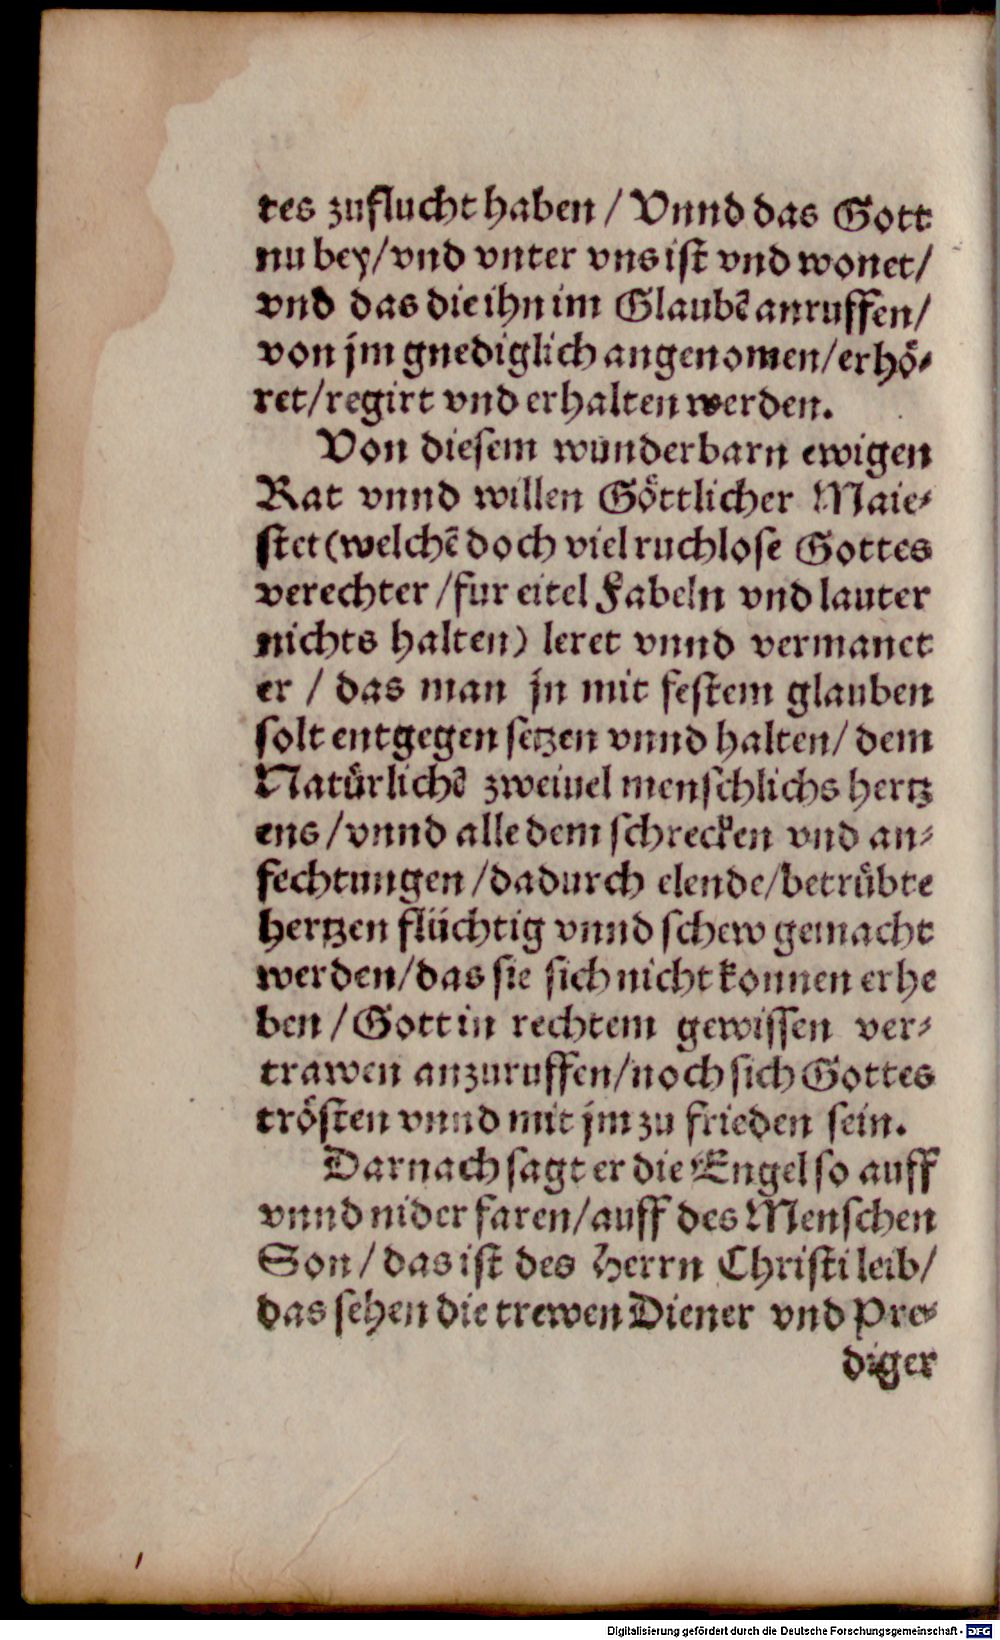 tes zuflucht haben / Vnnd das Gott
nu bey/vnd vnter vns ist vnd wonet/
vnd das die ihn im Glaubē anruffen/
von jm gnediglich angenomen/erhö-
ret/regirt vnd erhalten werden.
Von diesem wunderbarn ewigen
Rat vnnd willen Göttlicher Maie-
stet (welchē doch viel ruchlose Gottes
verechter /fur eitel Fabeln vnd lauter
nichts halten) leret vnnd vermanet
er / das man jn mit festem glauben
solt entgegen setzen vnnd halten/ dem
Natürlichē zweiuel menschlichs hertz
ens /vnnd alle dem schrecken vnd an-
fechtungen /dadurch elende/betrübte
hertzen flüchtig vnnd schew gemacht
werden/das sie sich nicht konnen erhe
ben / Gott in rechtem gewissen ver-
trawen anzuruffen/noch sich Gottes
trösten vnnd mit jm zu frieden sein.
Darnach sagt er die Engel so auff
vnnd nider faren/auff des Menschen
Son / das ist des Herrn Christi leib/
das sehen die trewen Diener vnd Pre-
diger
Digitalisierung gefördert durch die Deutsche Forschungsgemeinschaft - DFG